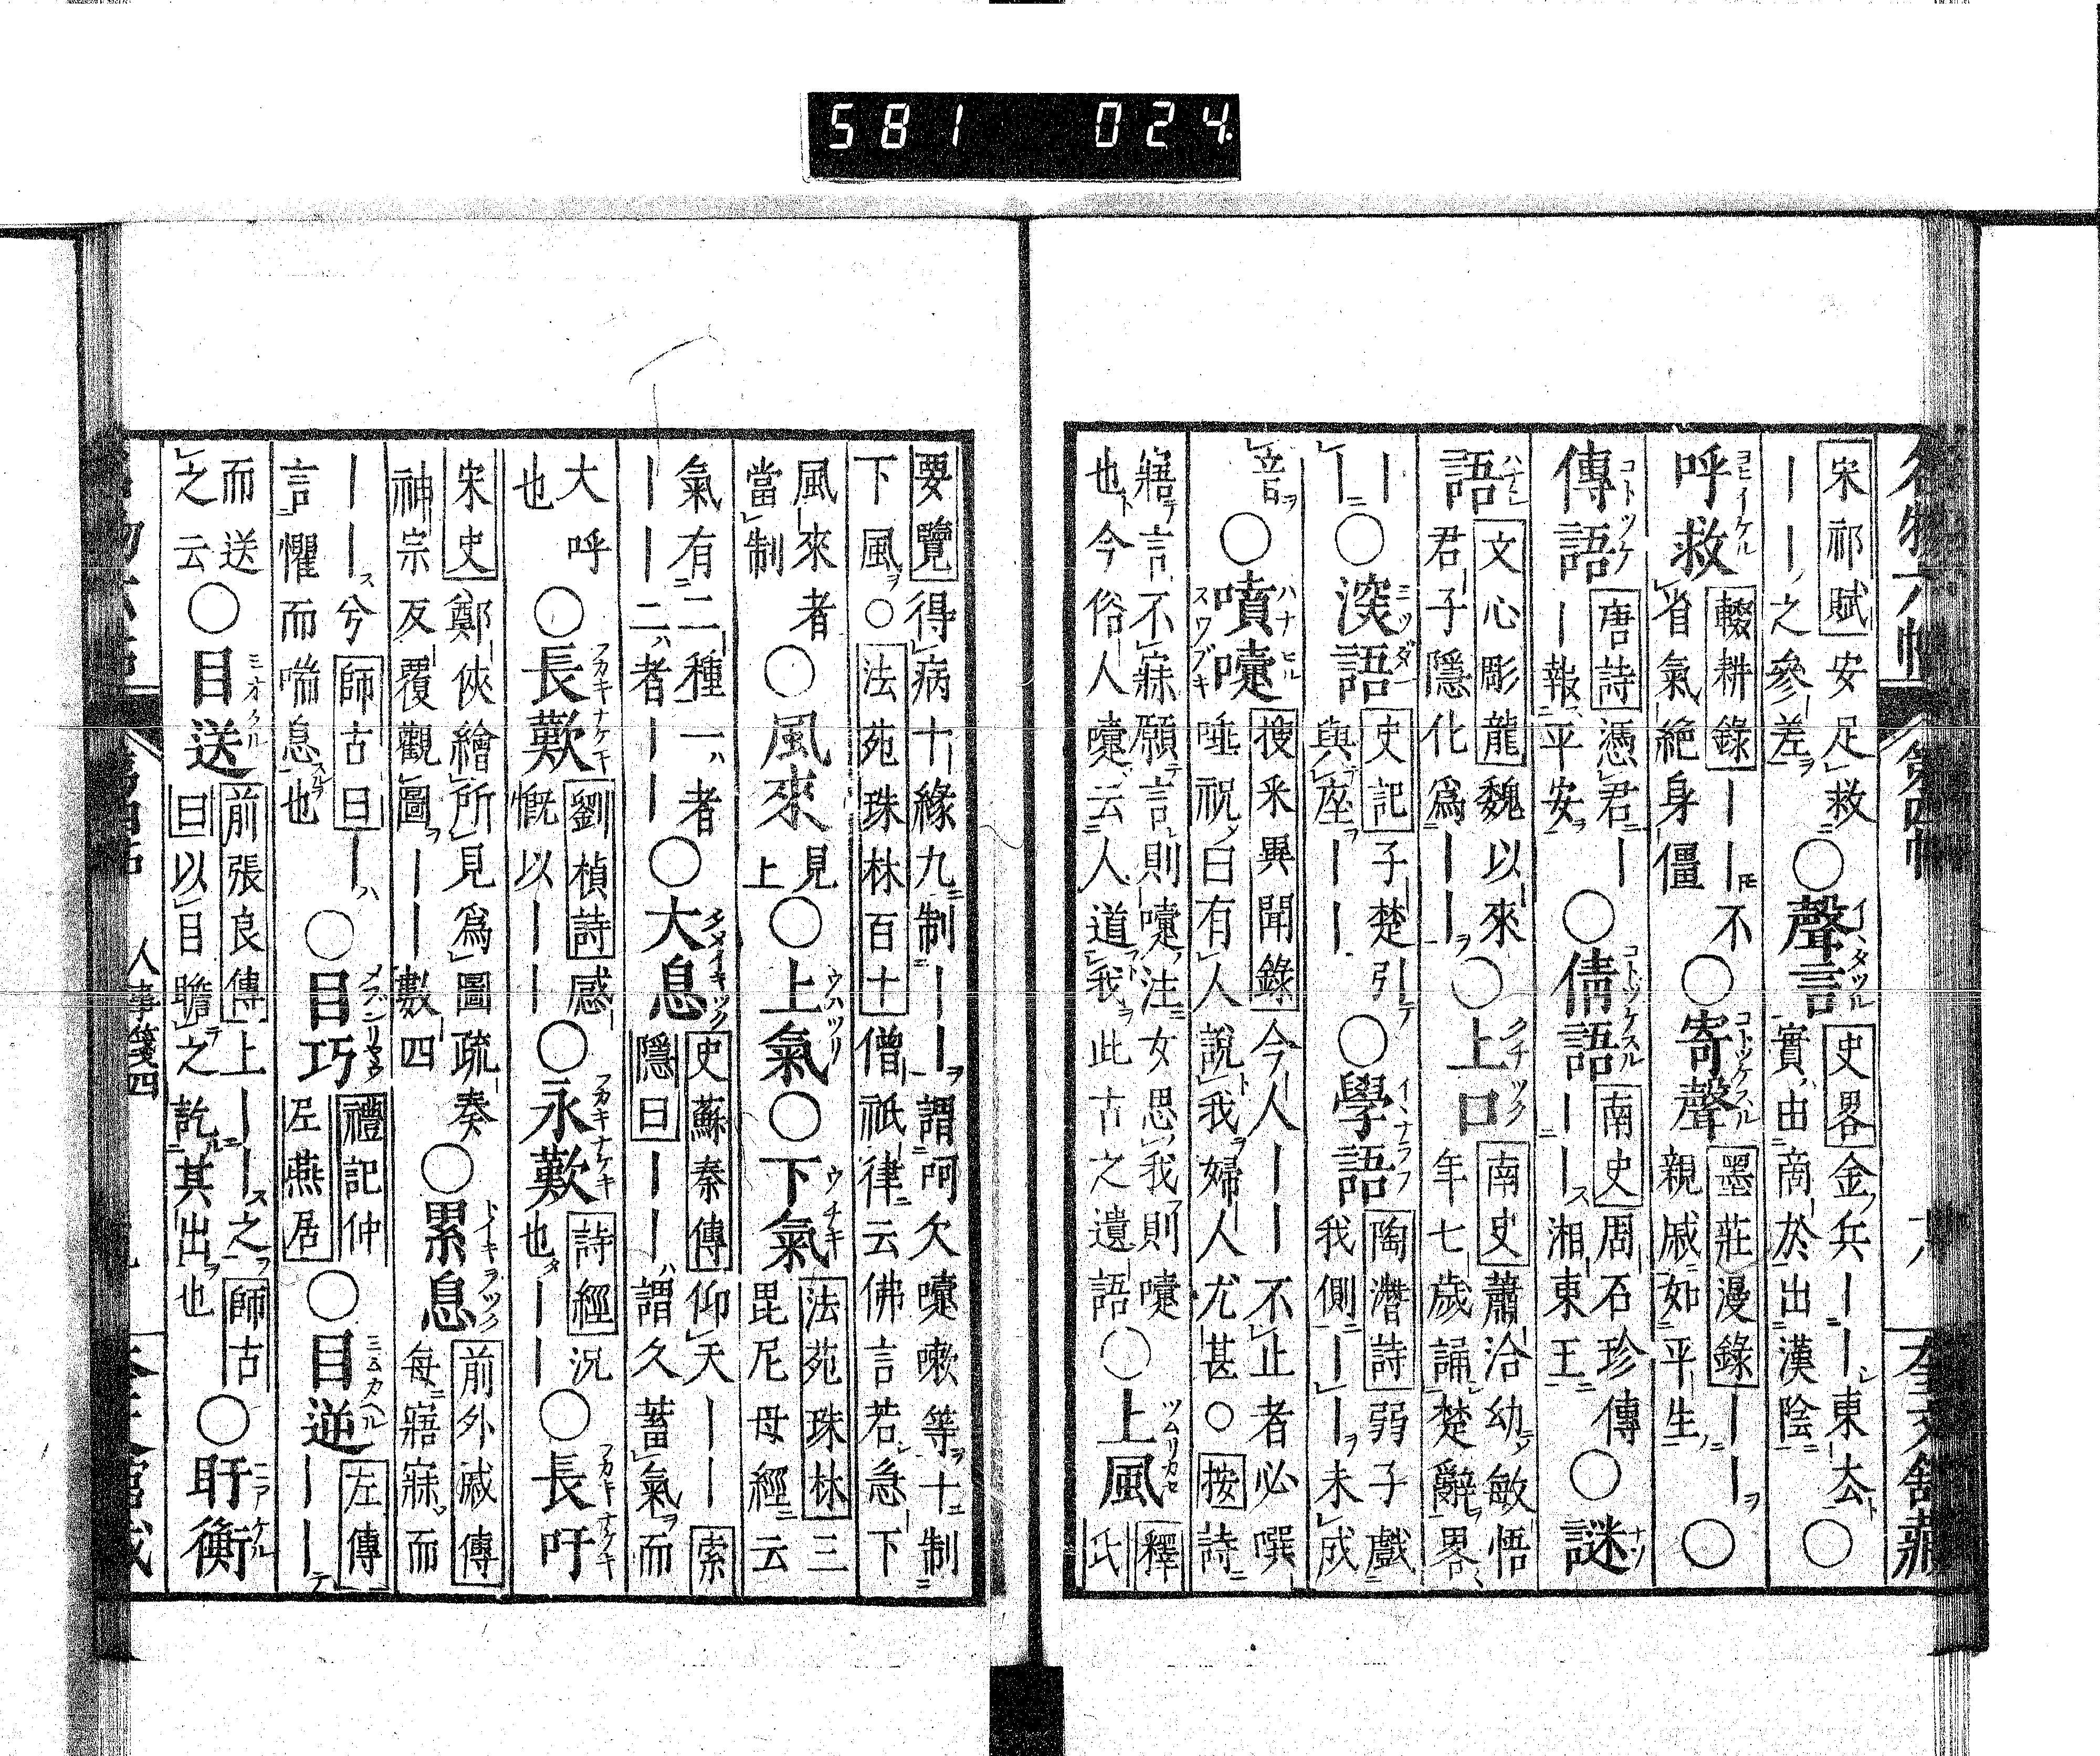 581 024
宋祁賦安足救
ーー之參差○聲言史畧金兵ーー東去
實由商於出漢陰○
呼救輟耕錄ーー不
省氣絶身僵○寄聲墨莊漫錄ーー
親戚如平生○
傳語唐詩憑君ー
ー報平安○倩語南史周石珍傳
ーー湘東王○謎
語文心彫龍魏以來
君子隱化爲ーー○上口南史蕭洽幼敏悟
年七歲誦楚辭畧
ー
ー○深語史記子楚引
與座ーー○學語陶潛詩弱子戲
我側ーー未成
音○噴嚏搜釆異聞錄今人ーー不止者必噀
唾祝曰有人說我婦人尤甚○按詩
寤言不寐願言則嚏注女思我則嚏
也今俗人嚏云人道我此古之遺語○上風釋
氏
要覽得病十緣九制ーー謂呵欠嚏嗽等十制
下風○法苑珠林百十僧祇律云佛言若急下
風來者
當制○風來見
上○上氣○下氣法苑珠林三
毘尼母經云
氣有二種一者
ーー二者ーー○大息史蘇秦傳仰天ーー索
隱曰ーー謂久蓄氣而
大呼
也○長歎劉楨詩感
慨以ーー○永歎詩經況
也ーー○長吁
宋史鄭俠繪所見爲圖疏奏
神宗反覆觀圖ーー數四○累息前外戚傳
每寤寐而
ーー兮師古曰ー
言懼而喘息也○目巧禮記仲
尼燕居○目逆左傳
ーー
而送
之云○目送前張良傳上ーー之師古
曰以目瞻之訖其出也○盱衡
人事箋四